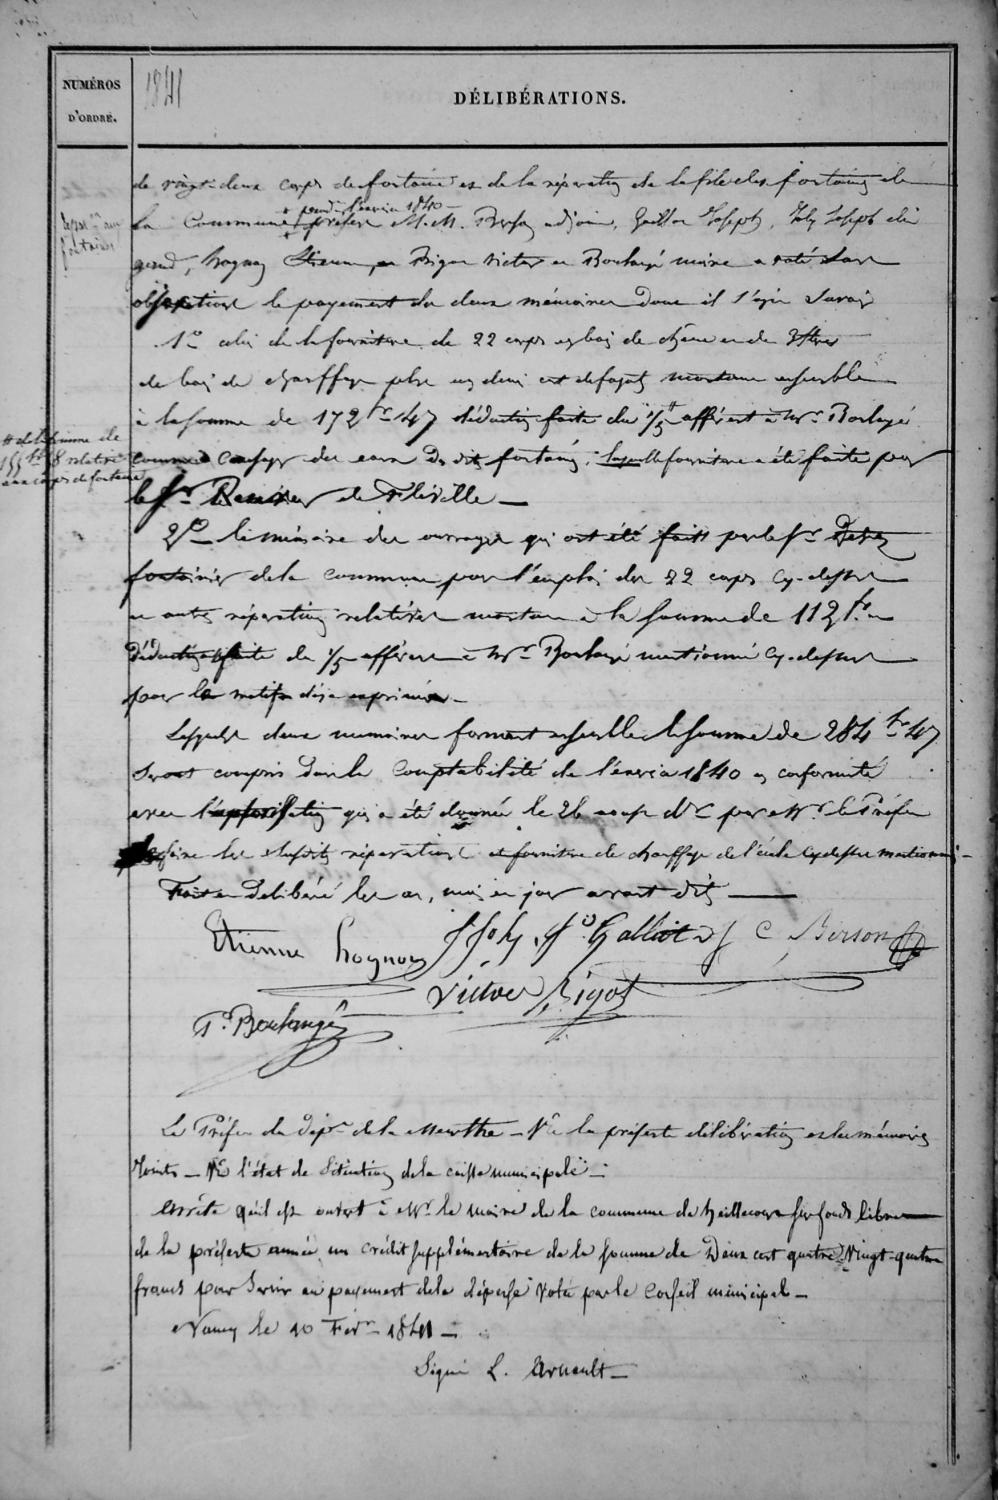 NUMÉROS
D'ORDRE.
1841
DÉLIBÉRATIONS.
de vingt-deux corps de fontaine et de la réparation de la file des fontaines de
+ pendt l'exercice 1840 —
la Commune + présens M.M. Berson adjoint, Galliot Joseph, Joly Joseph
Hognon Etienne, et Bigot Victor et Boulangé maire a voté sans
objection le payement des deux mémoires dont il s'agit Savoir
1.° celui de la fourniture de 22 corps en bois de chêne et de stères
de bois de chauffage plus un demi cent de fagots montant ensemble
à la somme de 172 frs 47 déduction faite du 1/5 # afférent à Mr. Boulangé
# de la somme de
155 frs 8 relative
aux corps de fontaine
comme usager des eaux des dites fontaines, laquelle fourniture a été faite par
le Sr. de Fléville —
2.° le mémoire des ouvrages qui ont été faits par le Sr.
fontainier de la commune pour l'emploi des 22 corps cy-dessus
et autres réparations relatives montant à la somme de 112 frs. et
déduction faite du 1/5 afférent à Mr. Boulangé mentionné cy-dessus
pour les motifs déjà exprimés. —
Lesquels deux mémoires formant ensemble la somme de 284 frs 47
seront compris dans la Comptabilité de l'exercice 1840 en conformité
avec l'autorisation qui a été donnée le 26 août dr par Mr. le Préfet
de faire les susdites réparations et fourniture de chauffage de l'école cy-dessus mentionnés —
Fait et Délibéré les an, mois et jour avant dits —
Etienne Hognon J Joly J.h Galliot J C Berson
Victor Bigot
P. Boulangé
Le Préfet du Dépt. de la Meurthe — Vu la présente délibération et les mémoires
Joints — Vu l'état de Situation de la caisse municipale —
Arrête qu'il est ouvert à Mr. le Maire de la commune de heillecourt sur fonds libres
de la présente année un crédit supplémentaire de la somme de Deux cent quatre Vingt-quatre
francs pour servir au payement de la dépense votée par le Conseil municipal —
Nancy le 10 Févr. 1841 —
Signé L. Arnault —